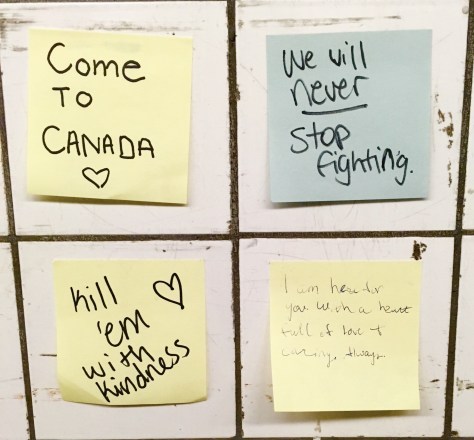 Come
TO
CANADA
We will
never
stop
fighting.
Kill
'em
with
kindness
I am here for
you with a heart
full of love &
caring. Always.